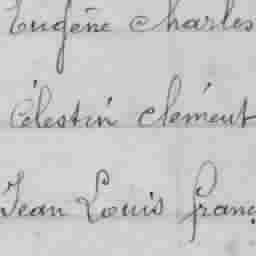 Eugène Charles
Célestin Clément
Jean Louis Franç